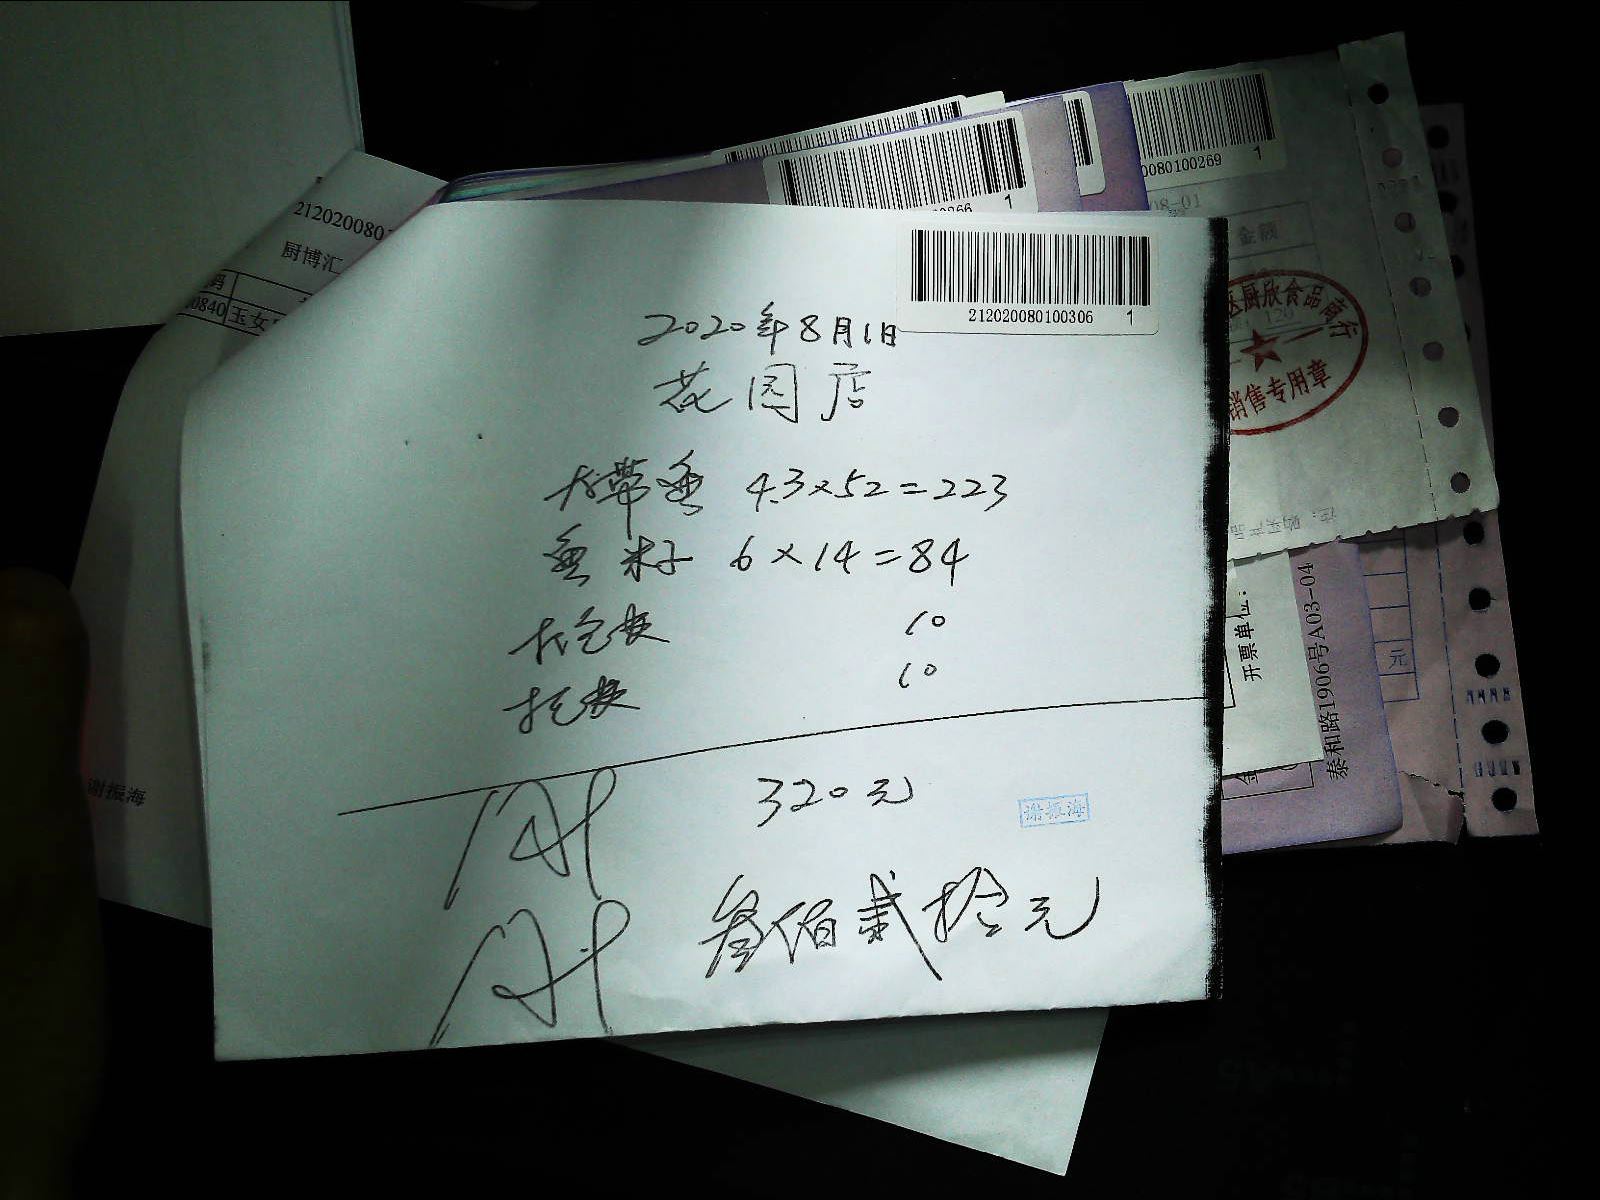 212020080
厨博汇
码
00840 玉女
谢振海
00266 1
0080100269 1
08-01
金额
厨欣食品商行
120
销售专用章
注：购买产品
开票单位：
泰和路1906号A03-04
元
212020080100306 1
2020年8月1日
花园店
大带鱼 4.3×52=223
鱼籽 6×14=84
打包费 10
打包费 10
320元
谢振海
叁佰贰拾元